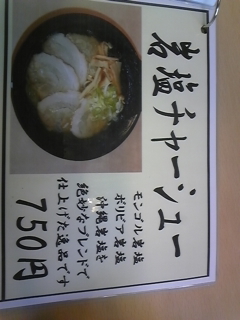 岩塩チャーシュー
モンゴル岩塩
ボリビア岩塩
沖縄岩塩を
絶妙なブレンドで
仕上げた逸品です
750円